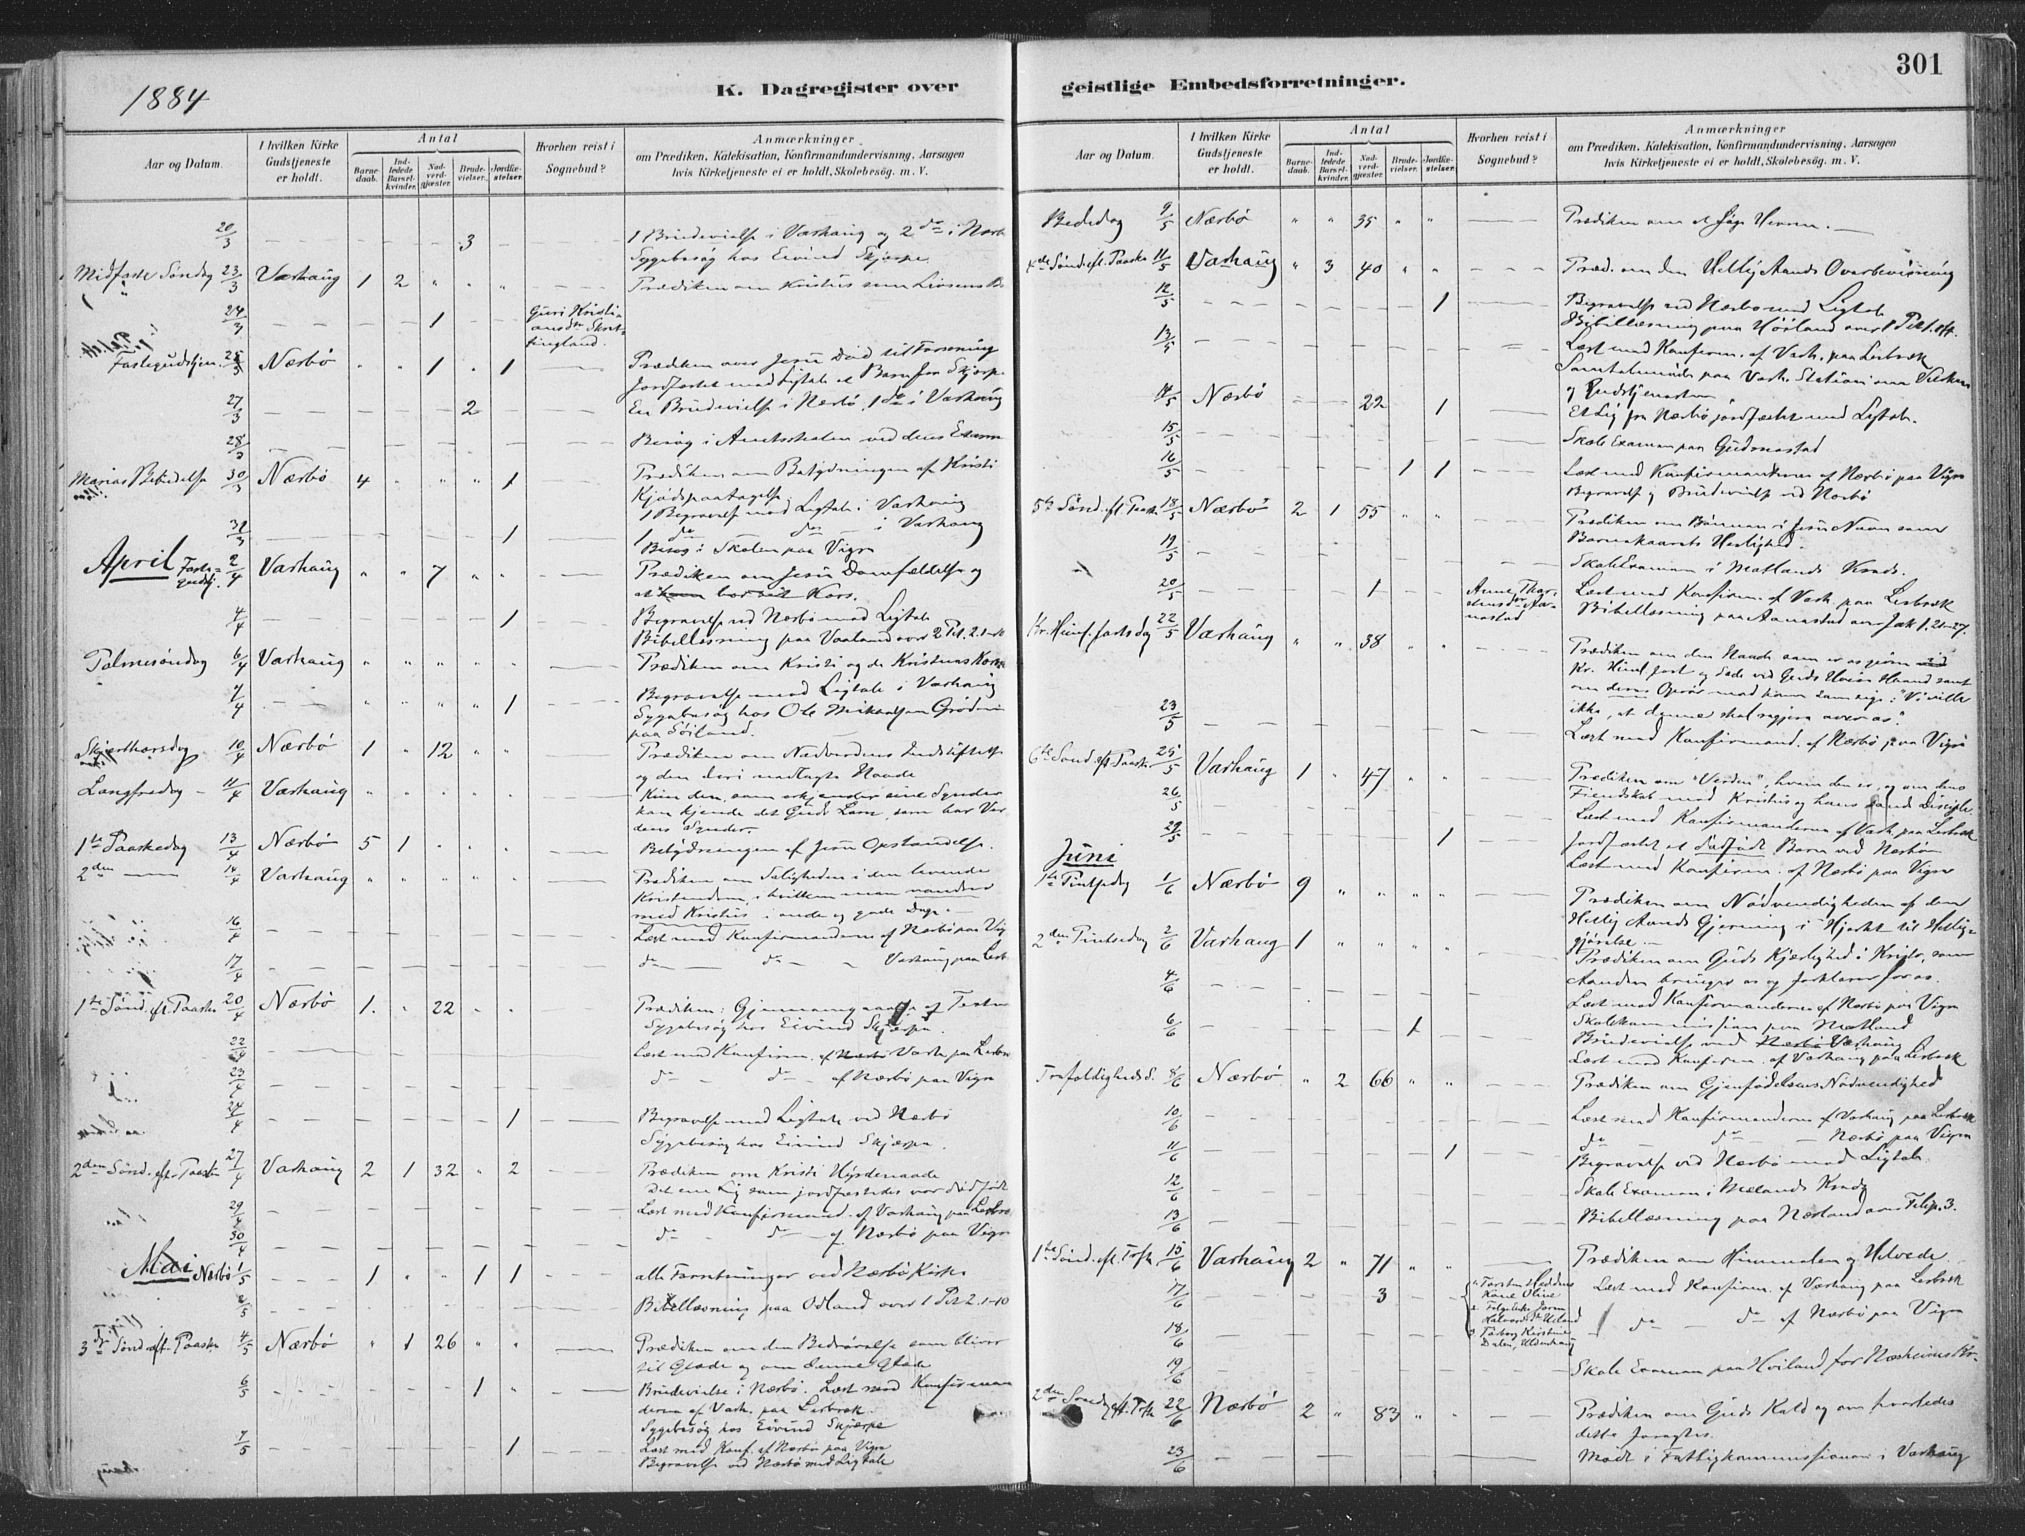 1884
K. Dagregister over
Aar og Datum.
I hvilken Kirke
Gudstjeneste
er holdt.
Antal
Barne-
daab.
Ind-
ledede
Barsel-
kvinder.
Nad-
verd-
gjæster.
Brude-
vielser.
Jordfæ-
stelser.
Hvorhen reist i
Sognebud?
Anmærkninger
om Prædiken, Katekisation, Konfirmandundervisning, Aarsagen
hvis Kirketjeneste ei er holdt, Skolebesög, m. V.
20/3 3 1 Brudevielse i Varhaug og 2 do i Nærbø
Sygebesøg hos Eivind Skjærpe
Midfaste Søndag 23/3 Varhaug 1 2 " " " Prædiken om Kristus som Livsens
24/3 1 Guri Kristi-
ansdtr
Fastegudstjen. 25/3 Nærbö " " 1 " 1 Prædiken over Jesu Död til Forsoning
Jordfæstet med Ligtale et Barn fra Skjærpe
27/3 2 En Brudevielse i Nærbø, 1 do i Varhaug
28/3 Besøg i Amtsskolen ved dens Examen
Marias Bebudelse 30/3 Nærbö 4 " " " 1 Prædiken om Betydningen af Kristi
Kjødspaatagelse
1 Begravelse med Ligtale i Varhaug
31/3 1 1 do do i Varhaug
Besøg i Skolen paa Vigre
April Faste-
gudstj. 2/4 Varhaug " " 7 " " Prædiken om Jesu Domfældelse og
Kors.
4/4 1 Begravelse ved Nærbø med Ligtale
Bibellæsning paa Vaaland over 2 Pet. 2.1-
Palmesöndag 6/4 Varhaug " " " " " Prædiken om Kristi og de Kristnes Kors
7/4 " " " " 1 Begravelse med Ligtale i Varhaug
Sygebesøg hos Ole Mikaelsen
paa
Skjærthorsdag 10/4 Nærbö 1 " 12 " " Prædiken om Nadverdens Indstiftelse
og den deri modtagne Naade
Langfredag 11/4 Varhaug " " " " " Kun den, som erkjender sine Synder
kan kjende det Guds Lam, som bar Ver-
dens Synder.
1te Paaskedag 13/4 Nærbö 5 1 " " " Betydningen af Jesu Opstandelse.
2den 14/4 Varhaug " " " " " Prædiken om Saligheden i den levende
Kristendom, i hvilken man vandrer
med Kristus i onde og gode Dage.
16/4 Læst med Konfirmanderne af Nærbø paa Vigre
17/4 do do Varhaug paa
1te Sönd. eft. Paaske 20/4 Nærbö 1. " 22 " " Prædiken: Gjennemgaaelse af Texten
Sygebesøg hos Eivind Skjærpe.
22/4 Læst med Konfirm. af Varh. paa
23/4 do do af Nærbø paa Vigre
24/4 1 Begravelse med Ligtale ved Nærbø
Sygebesög hos Eivind Skjærpe.
2den Sönd. eft. Paaske 27/4 Varhaug 2 1 32 " 2 Prædiken om Kristi Hyrdenaade
Det ene Lig som jordfæstedes var dødfødt
29/4 Læst med Konfirmand. af Varhaug paa
30/4 do do af Nærbø paa Vigre
Mai Nærbö 1/5 1 " " 1 1 alle Forretninger ved Nærbø Kirke
2/5 Bibellæsning paa Odland over 1 Pet 2.1-10
3die Sönd. eft. Paaske 4/5 Nærbö " 1 26 " " Prædiken om den Bedrøvelse som bliver
til Glæde og om denne Glæde
6/5 1 " Brudevielse i Nærbø. Læst med Konfirman-
derne af Varh. paa
Sygebesøg hos Eivind Skjærpe
7/5 1 Læst med Konf. af Nærbø paa Vigre
Begravelse ved Nærbø med Ligtale
geistlige Embedsforretninger.
301
Aar og Datum.
I hvilken Kirke
Gudstjeneste
er holdt.
Antal
Barne-
daab.
Ind-
ledede
Barsel-
kvinder.
Nad-
verd-
gjæster.
Brude-
vielser.
Jordfæ-
stelser.
Hvorhen reist i
Sognebud?
Anmærkninger
om Prædiken, Katekisation, Konfirmandundervisning, Aarsagen
hvis Kirketjeneste ei er holdt, Skolebesög, m. V.
Bededag 9/5 Nærbö " " 35 " " Prædiken om at søge Herren.
4de Sönd. eft. Paaske 11/5 Varhaug " 3 40 " " Præd. om den Hellig Aands Overbevisning
12/5 1 Begravelse ved Nærbø med Ligtale
Bibellæsning paa Höiland over 1 Pet.
13/5 Læst med Konfirm. af Varh. paa
Samtalemøde paa Varh. Station om
og Gudstjenesten
14/5 Nærbö 22 1 Et Lig fra Nærbø jordfæstet med Ligtale.
15/5 Skole Examen paa
16/5 1 1 Læst med Konfirmanderne af Nærbø paa Vigre
Begravelse og Brudevielse ved Nærbø
5te Sönd. eft. Paaske 18/5 Nærbö 2 1 55 " " Prædiken om Bönnen i Jesu Navn som
Barnekaarets Herlighed.
19/5 Skole Examen i Matlands Kreds.
20/5 1 Læst med Konfirm. af Varh. paa
Bibellæsning paa over Jak 1. 21-27.
Kr. Himmelfartsdag 22/5 Varhaug " " 38 " " Prædiken om den Naade som er os given
Kr. Himmelfart og Sæde ved Guds Höire Haand samt
om deres Oprør mod ham som sige: "Vi ville
ikke, at denne skal regjere over os".
23/5 Læst med Konfirmand. af Nærbø paa Vigre
6te Sönd. eft. Paaske 25/5 Varhaug 1 " 47 " " Prædiken om "Verden", hvem den er, og om dens
Fiendskab mod Kristus og hans sande Disciple
26/5 Læst med Konfirmanderne af Varh. paa
29/5 1 Jordfæstet et dødfødt Barn ved Nærbø
Læst med Konfirm. af Nærbø paa Vigre
Juni
1te Pintsedag 1/6 Nærbö 9 " " " " Prædiken om Nødvendigheden af den
Hellig Aands Gjerning i Hjertet til Hellig-
gjørelse.
2den Pintsedag 2/6 Varhaug 1 " " " " Prædiken om Guds Kjærlighed i Kristo, som
Aanden bringer os og forklarer for os.
4/6 Læst med Konfirmanderne af Nærbø paa Vigre
Skolekommission paa Matland
6/6 1 Brudevielse ved Nærbø Varhaug
Læst med Konfirm. af Varhaug paa
Trefoldigheds S. 8/6 Nærbö " 2 66 " " Prædiken om Gjenfødelsens Nødvendighed
10/6 Læst med Konfirmanderne af Varhaug paa
do do Nærbø paa Vigre
11/6 1 Begravelse ved Nærbø med Ligtale.
12/6 Skole Examen i Kreds
13/6 Bibellæsning paa Nærland over Filip. 3.
1te Sönd. eft. Tref. 15/6 Varhaug 2 " 71 " " Prædiken om Himmelen og Helvede.
17/6 3 Læst med Konfirm. af Varhaug paa
18/6 do af Nærbø paa Vigre
19/6 Skole Examen paa Hviland for
2den Sönd. eft. Tref. 22/6 Nærbö 2 " 83 " " Prædiken om Guds Kald og om hvorledes
dette foragtes.
23/6 Möde i Fattigkommissionen i Varhaug